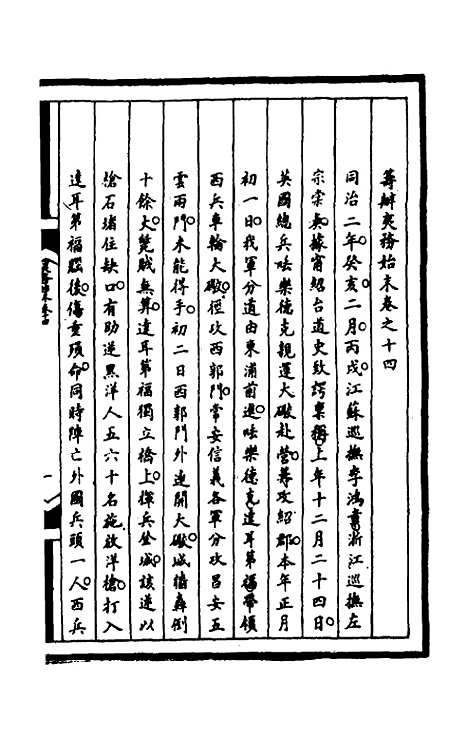 籌辦夷務始末卷之十四
同治二年癸亥二月丙戌江蘇巡撫李鴻章浙江巡撫左
宗棠奏據甯紹台道史致諤稟稱上年十二月二十四日
英國總兵呿樂德克親運大礮赴營籌攻紹郡本年正月
初一日我軍分道由東浦前進呿樂德克達耳第福帶領
西兵車輪大礮徑攻西郭門常安信義各軍分攻昌安五
雲兩門未能得手初二日西郭門外連開大礮城牆轟倒
十餘丈斃賊無算達耳第福獨立橋上揮兵登城該逆以
條石堵住缺口有助逆黑洋人五六十名施放洋槍打入
達耳第福腦後傷重殞命同時陣亡外國兵頭一人西兵